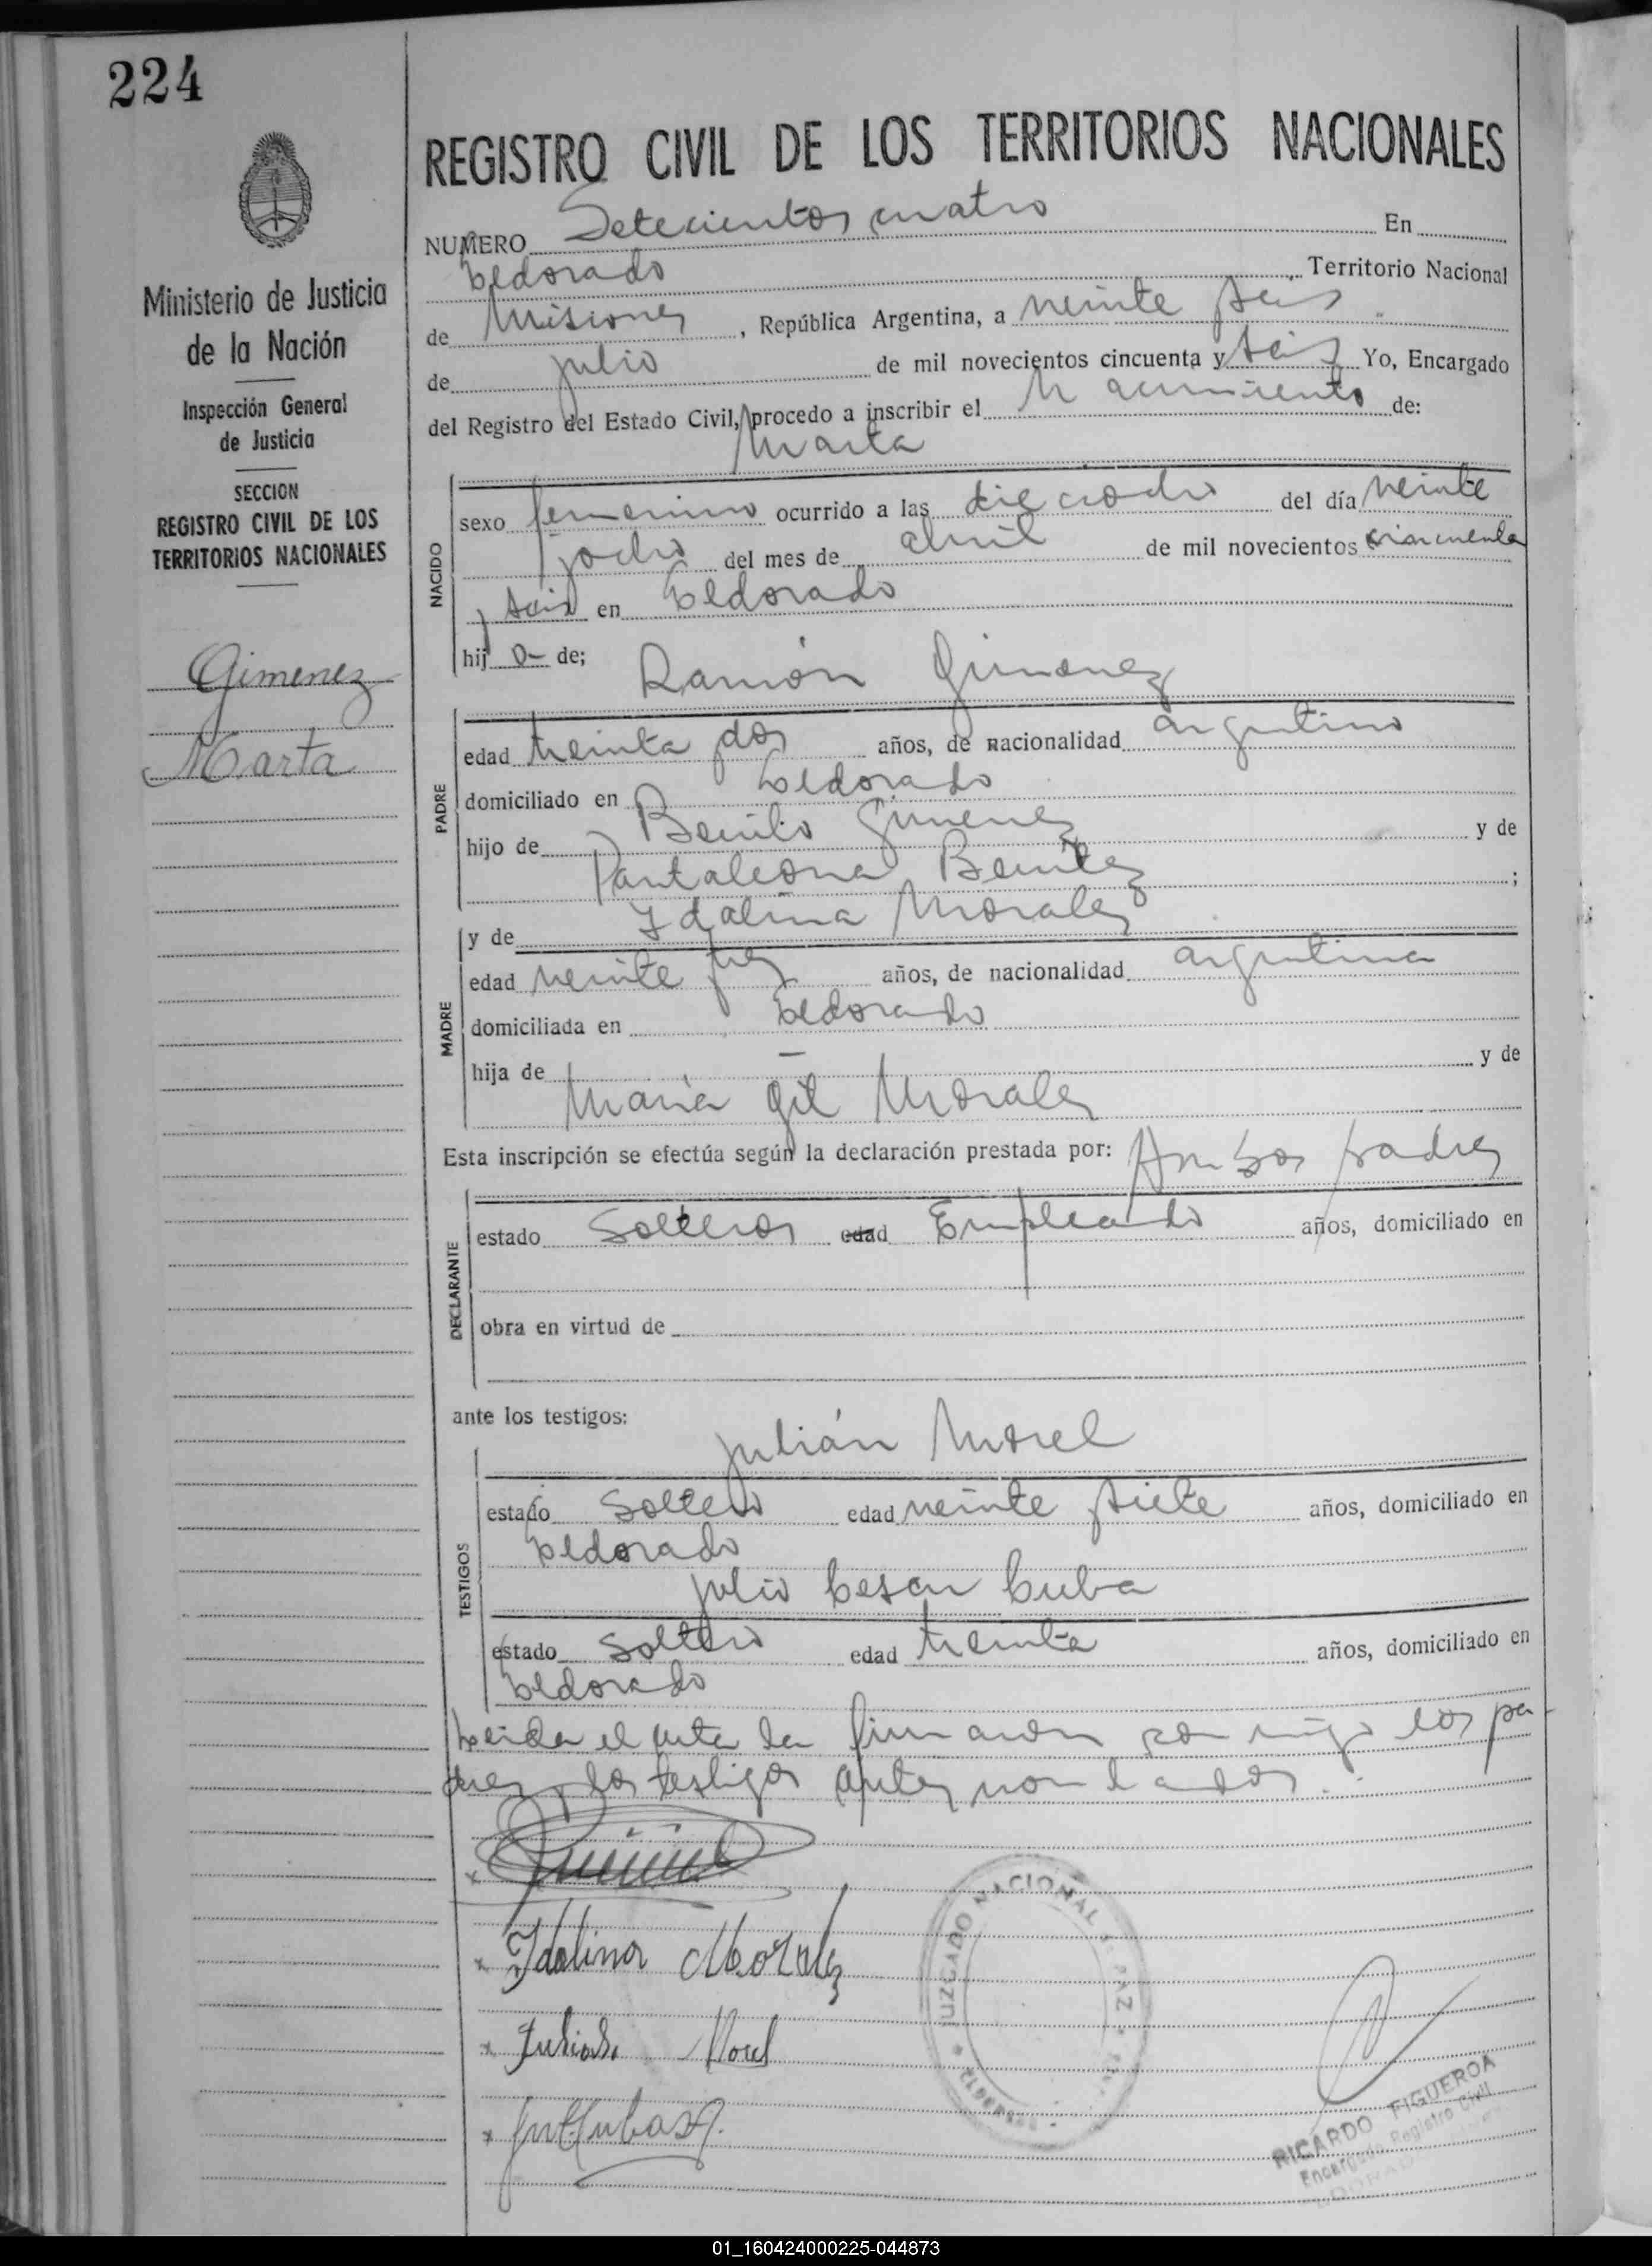 224
REGISTRO CIVIL DE LOS TERRITORIOS NACIONALES
Ministerio de Justicia
de la Nación
Inspección General
de Justicia
SECCION
REGISTRO CIVIL DE LOS
TERRITORIOS NACIONALES
Gimenez
Marta
NUMERO Setecientos cuatro En
Eldorado Territorio Nacional
de Misiones, República Argentina, a veinte y seis
de julio de mil novecientos cincuenta y seis Yo, Encargado
del Registro del Estado Civil, procedo a inscribir el Nacimiento de:
Marta
NACIDO
sexo femenino ocurrido a las dieciocho del día veinte
y ocho del mes de abril de mil novecientos cincuenta
y seis en Eldorado
hij a de; Ramón Gimenez
PADRE
edad treinta y dos años, de nacionalidad argentino
domiciliado en Eldorado
hijo de Benito Gimenez y de
Pantaleona Benitez ;
y de Idalina Morales
MADRE
edad veinte y tres años, de nacionalidad argentina
domiciliada en Eldorado
hija de — y de
María Gil Morales
Esta inscripción se efectúa según la declaración prestada por: Ambos padres
DECLARANTE
estado Solteros edad Empleado años, domiciliado en
obra en virtud de
ante los testigos:
Julián Morel
TESTIGOS
estado Soltero edad veinte y siete años, domiciliado en
Eldorado
Julio Cesar Cuba
estado Soltero edad treinta años, domiciliado en
Eldorado
Leida el acta la firmaron conmigo los pa-
dres y los testigos antes nombrados.
x
x Idalina Morales
x Julián Morel
x
JUZGADO NACIONAL DE PAZ
RICARDO FIGUEROA
Encargado Registro Civil
ELDORADO
01_160424000225-044873